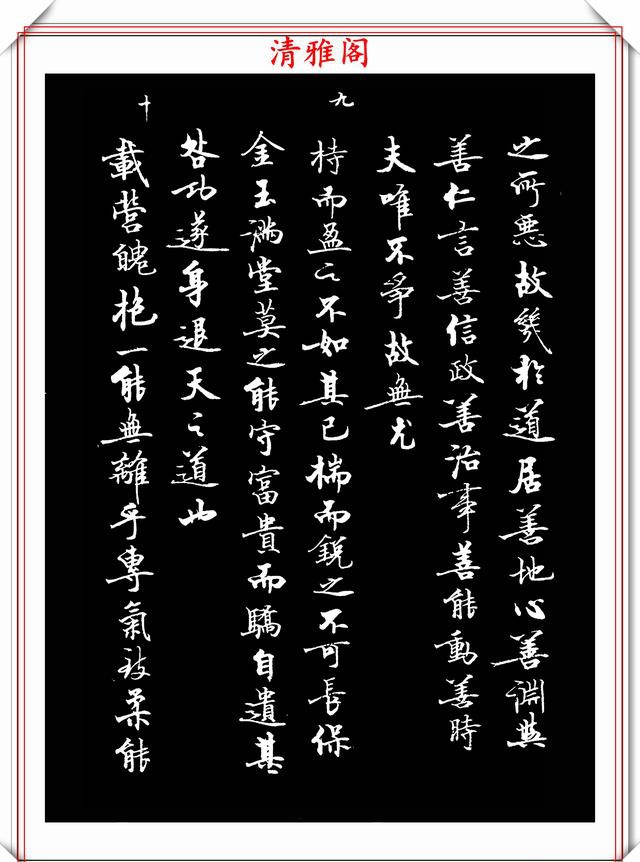 清雅阁
之所惡故幾於道居善地心善淵與
善仁言善信政善治事善能動善時
夫唯不爭故無尤
九
持而盈之不如其已揣而銳之不可長保
金玉滿堂莫之能守富貴而驕自遺其
咎功遂身退天之道也
十
載營魄抱一能無離乎專氣致柔能